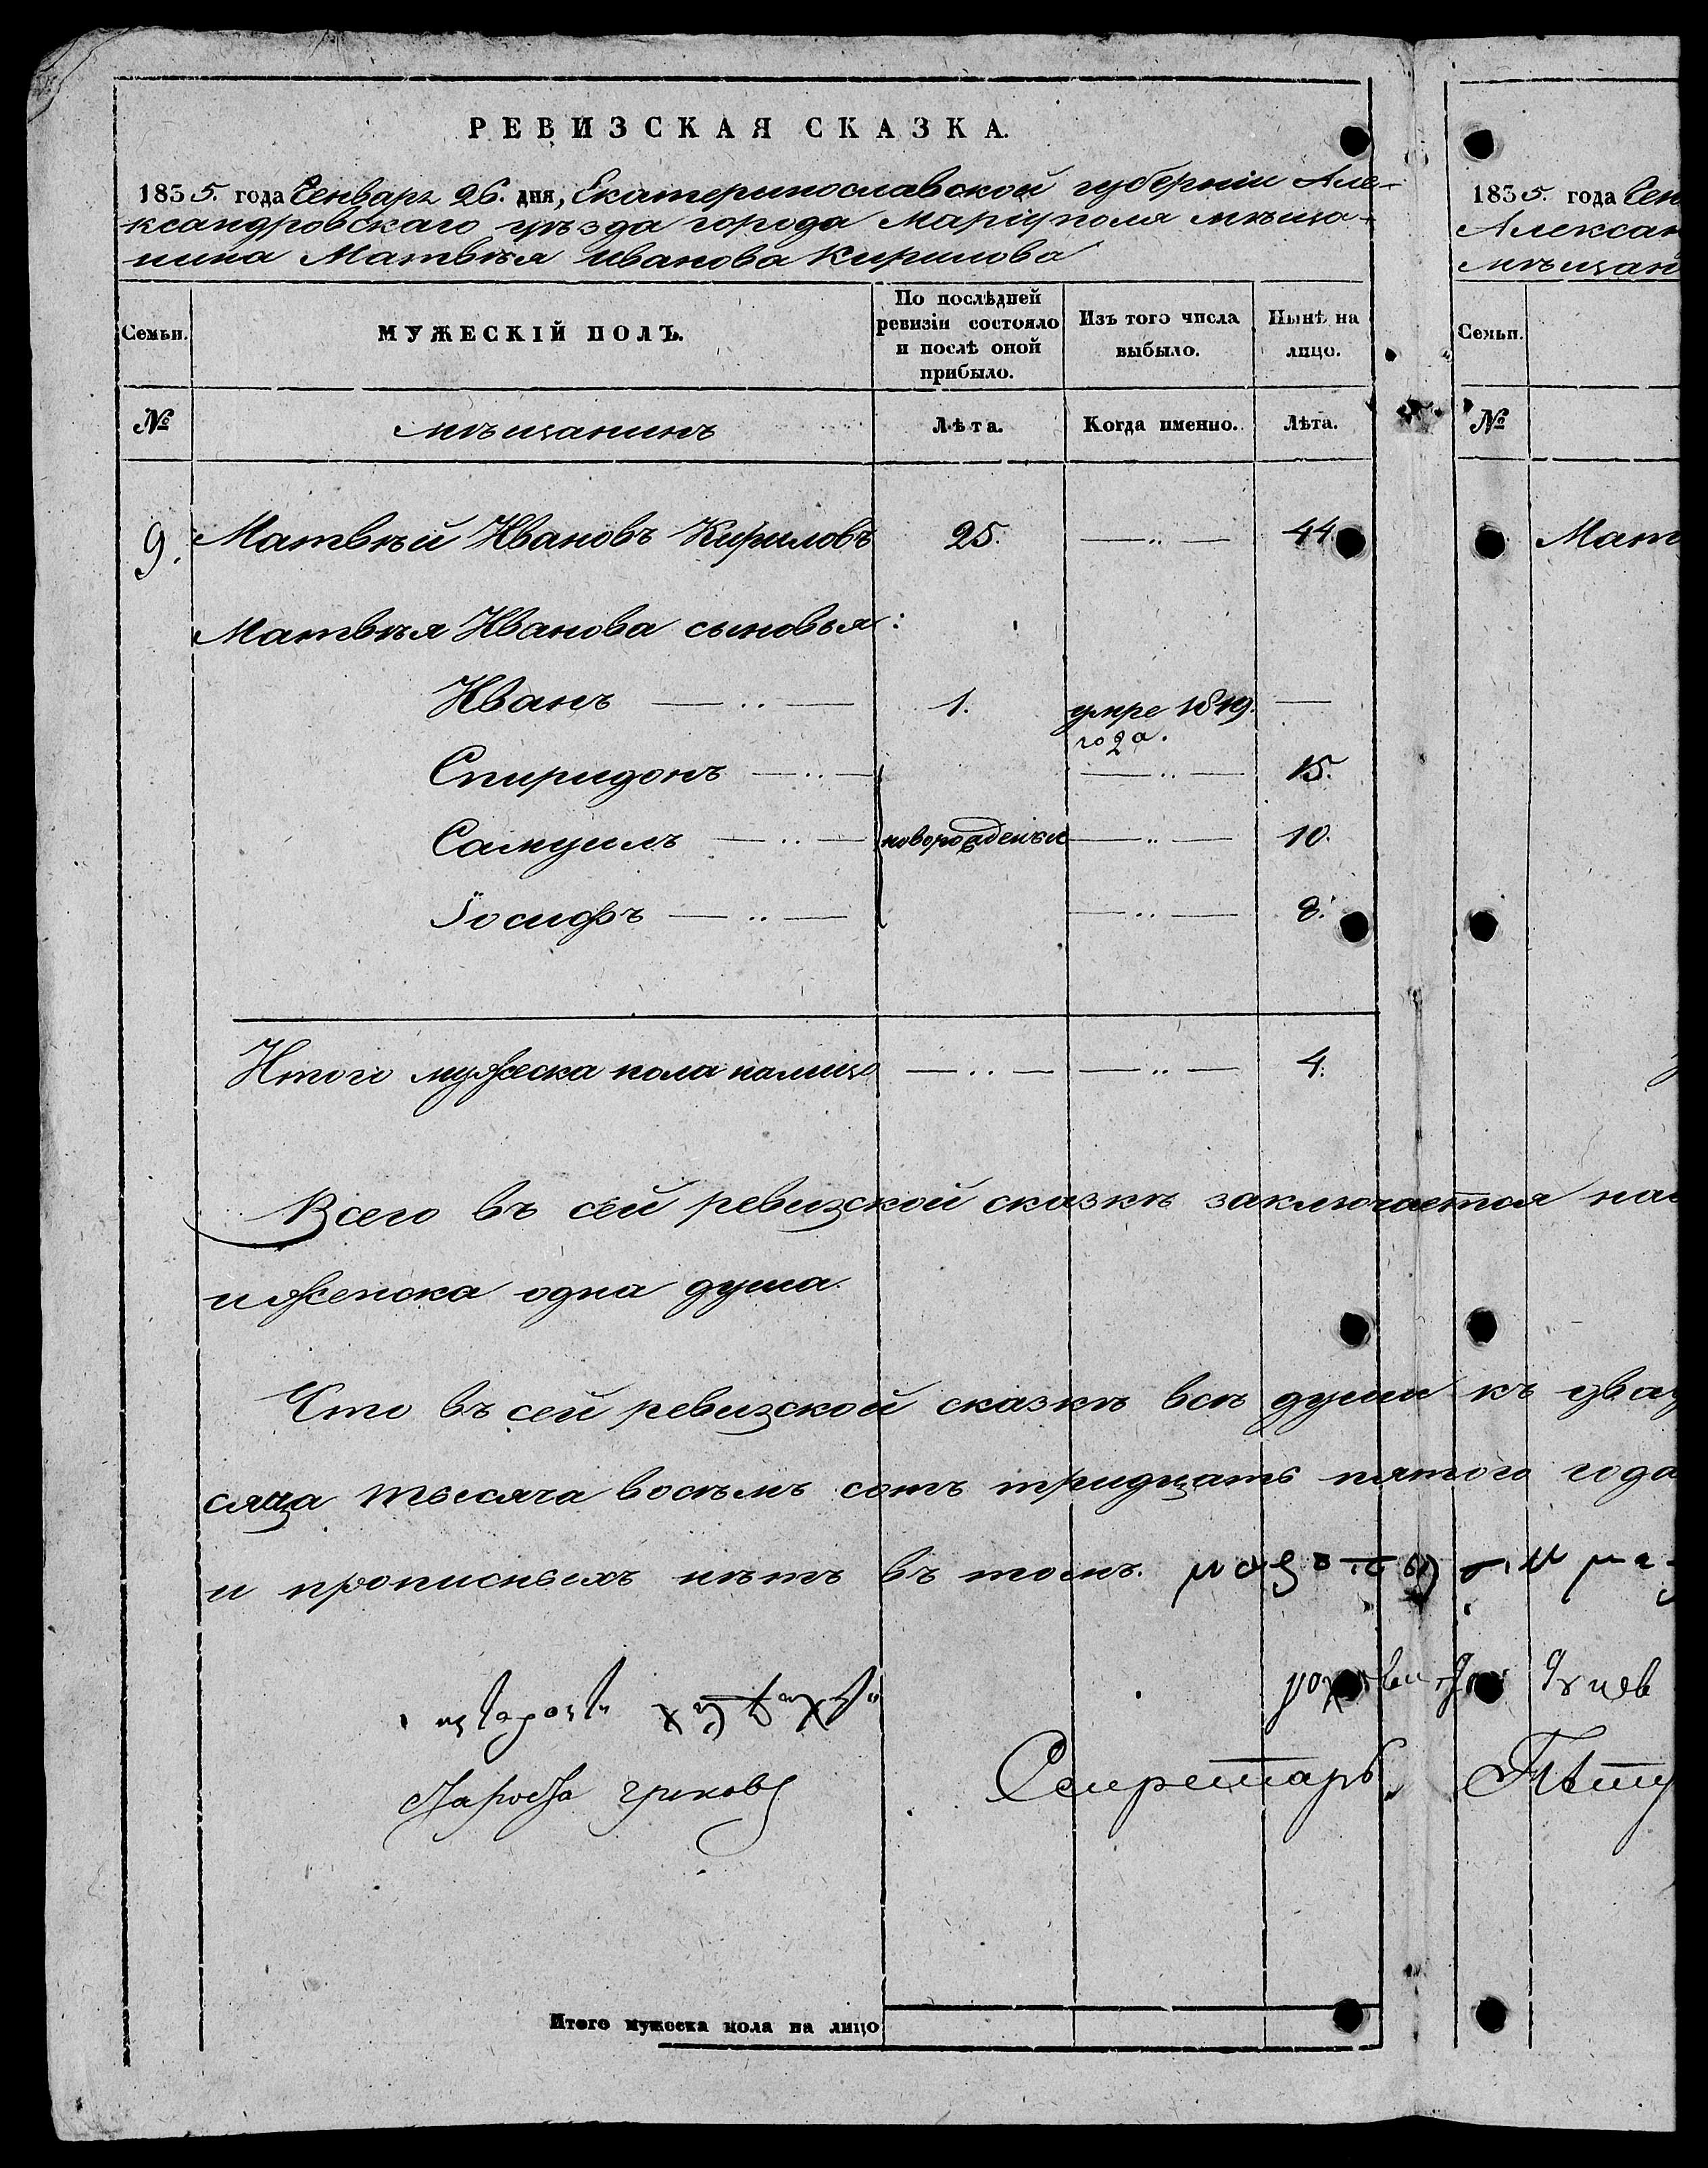 РЕВИЗСКАЯ СКАЗКА.
1835. года Генваря 26. дня, Екатеринославской губерніи Але-
ксандровскаго уѣзда города Маріуполя мѣща-
нина Матвѣя Иванова Кирилова
Семьи. МУЖЕСКІЙ ПОЛЪ. По послѣдней ревизіи состояло и послѣ оной прибыло. Изъ того числа выбыло. Нынѣ на лицо.
№ мѣщанинъ Лѣта. Когда именно. Лѣта.
9. Матвѣй Ивановъ Кириловъ 25. —„— 44.
Матвѣя Иванова сыновья:
Иванъ —„— 1. умре 1819. года. —
Спиридонъ —„— —„— 15.
Самуилъ —„— новорожденные —„— 10.
Іосифъ —„— —„— 8.
Итого мужеска пола налицо —„— —„— 4.
Всего въ сей ревизской сказкѣ заключается на
и женска одна душа.
Что въ сей ревизской сказкѣ всѣ души къ
сяца тысяча восѣмъ сотъ тридцать пятого года
и прописныхъ нѣтъ въ томъ.
Секретарь
Итого мужеска пола на лицо
1835. года Ген
Алексан
мѣщан
Семьи.
№
Мат